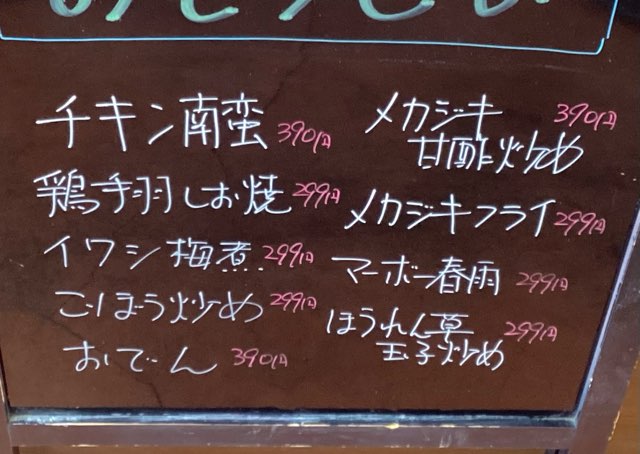 チキン南蛮 390円
鶏手羽しお焼 299円
イワシ梅煮 299円
ごぼう炒め 299円
おでん 390円
メカジキ 390円
甘酢炒め
メカジキフライ 299円
マーボー春雨 299円
ほうれん草 299円
玉子炒め